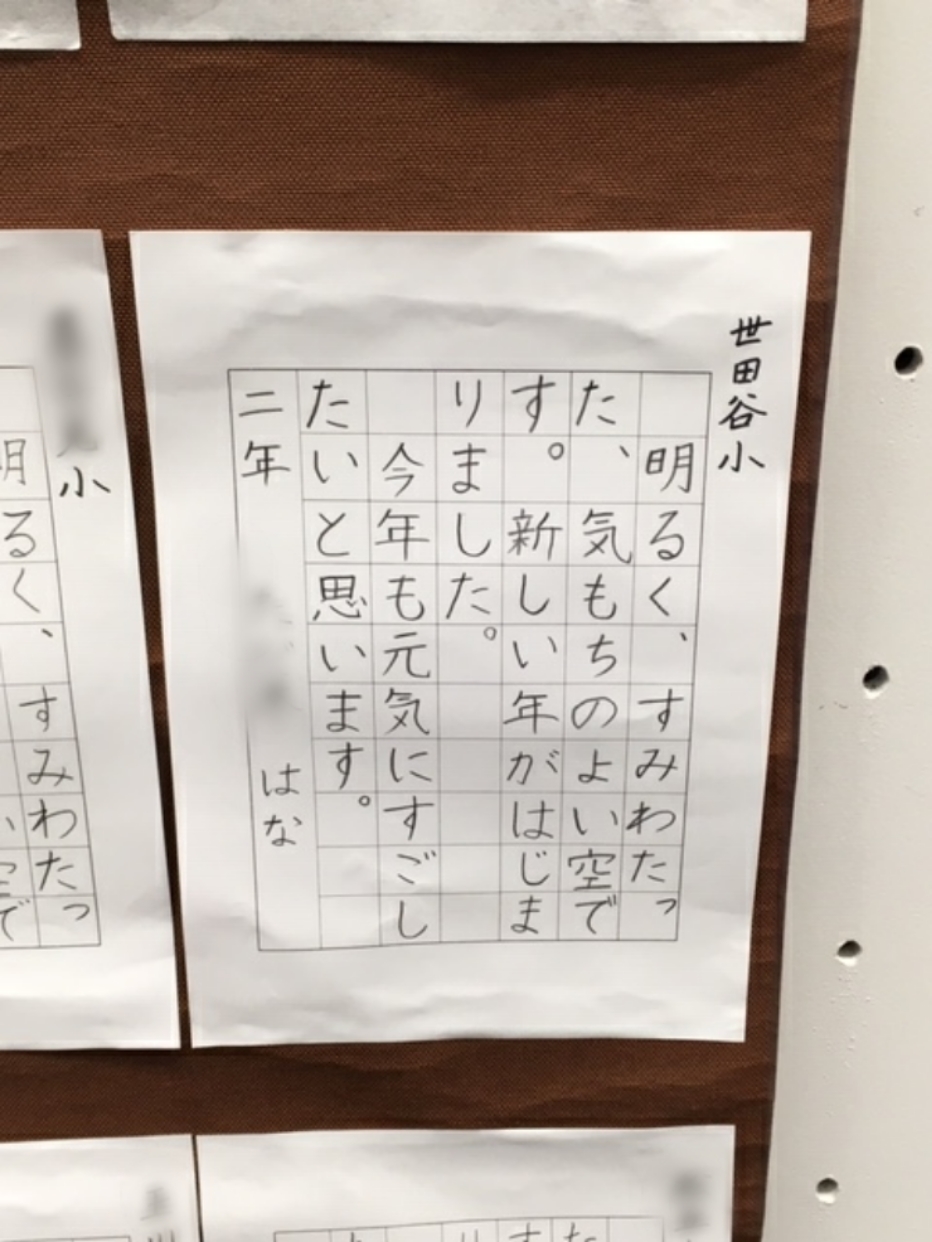 世田谷小
明るく、すみわたっ
た、気もちのよい空で
す。新しい年がはじま
りました。
今年も元気にすごし
たいと思います。
二年 はな
小
明るく、すみわたっ